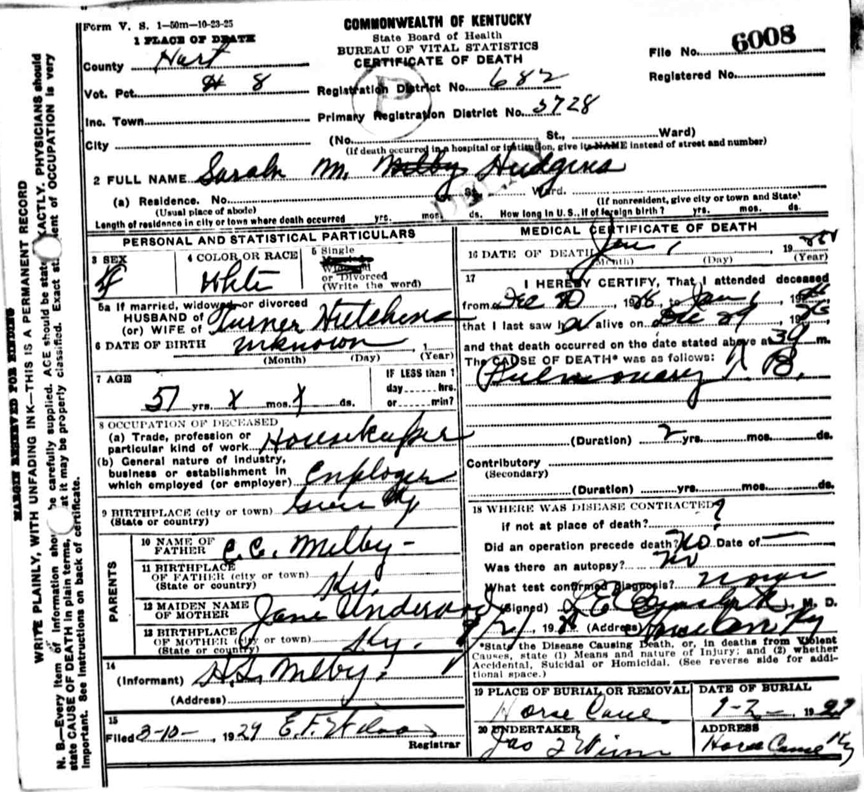 Form V. S. 1—50m—10-23-25
COMMONWEALTH OF KENTUCKY
State Board of Health
BUREAU OF VITAL STATISTICS
CERTIFICATE OF DEATH
File No. 6008
Registered No.
1 PLACE OF DEATH
County Hart
Vot. Pct. 8
Inc. Town
City
Registration District No. 682
Primary Registration District No. 3728
(No. St., Ward)
(If death occurred in a hospital or institution, give its NAME instead of street and number)
2 FULL NAME Sarah M. Milby Hudgins
(a) Residence. No. St. Ward.
(Usual place of abode)
(If nonresident, give city or town and State)
Length of residence in city or town where death occurred yrs. mos. ds. How long in U.S., if of foreign birth? yrs. mos. ds.
PERSONAL AND STATISTICAL PARTICULARS
3 SEX
F
4 COLOR OR RACE
White
5 Single
or Divorced
(Write the word)
5a If married, widowed or divorced
HUSBAND of
(or) WIFE of Turner Hutchens
6 DATE OF BIRTH unknown 1
(Month) (Day) (Year)
7 AGE
51 yrs. x mos. x ds.
IF LESS than 1
day hrs.
or min?
8 OCCUPATION OF DECEASED
(a) Trade, profession or
particular kind of work Housekeeper
(b) General nature of industry,
business or establishment in
which employed (or employer) Employer
9 BIRTHPLACE (city or town) Ky
(State or country)
PARENTS
10 NAME OF
FATHER C.C. Milby
11 BIRTHPLACE
OF FATHER (city or town)
(State or country) Ky.
12 MAIDEN NAME
OF MOTHER Jane Underwood
13 BIRTHPLACE
OF MOTHER (city or town)
(State or country) Ky.
14
(Informant) Milby
(Address)
15
Filed 3-10-, 1929 E. F.
Registrar
MEDICAL CERTIFICATE OF DEATH
16 DATE OF DEATH Jan 1 19
(Month) (Day) (Year)
17
I HEREBY CERTIFY, That I attended deceased
from Dec 1928 to Jan 1 19
that I last saw h alive on Dec 29 19
and that death occurred on the date stated above at m.
The CAUSE OF DEATH* was as follows:
Pulmonary T. B.
(Duration) 2 yrs. mos. ds.
Contributory
(Secondary)
(Duration) yrs. mos. ds.
18 WHERE WAS DISEASE CONTRACTED
if not at place of death? ?
Did an operation precede death? No Date of —
Was there an autopsy? no
What test confirmed diagnosis?
(Signed) M. D.
19 (Address) Horse Cave Ky
*State the Disease Causing Death, or, in deaths from Violent
Causes, state (1) Means and nature of Injury; and (2) whether
Accidental, Suicidal or Homicidal. (See reverse side for addi-
tional space.)
19 PLACE OF BURIAL OR REMOVAL
Horse Cave
DATE OF BURIAL
1-2- 1929
20 UNDERTAKER
Jas
ADDRESS
Horse Cave Ky
MARGIN RESERVED FOR BINDING
WRITE PLAINLY, WITH UNFADING INK—THIS IS A PERMANENT RECORD
N. B.—Every item of information should be carefully supplied. AGE should be stated EXACTLY. PHYSICIANS should
state CAUSE OF DEATH in plain terms, that it may be properly classified. Exact statement of OCCUPATION is very
important. See instructions on back of certificate.